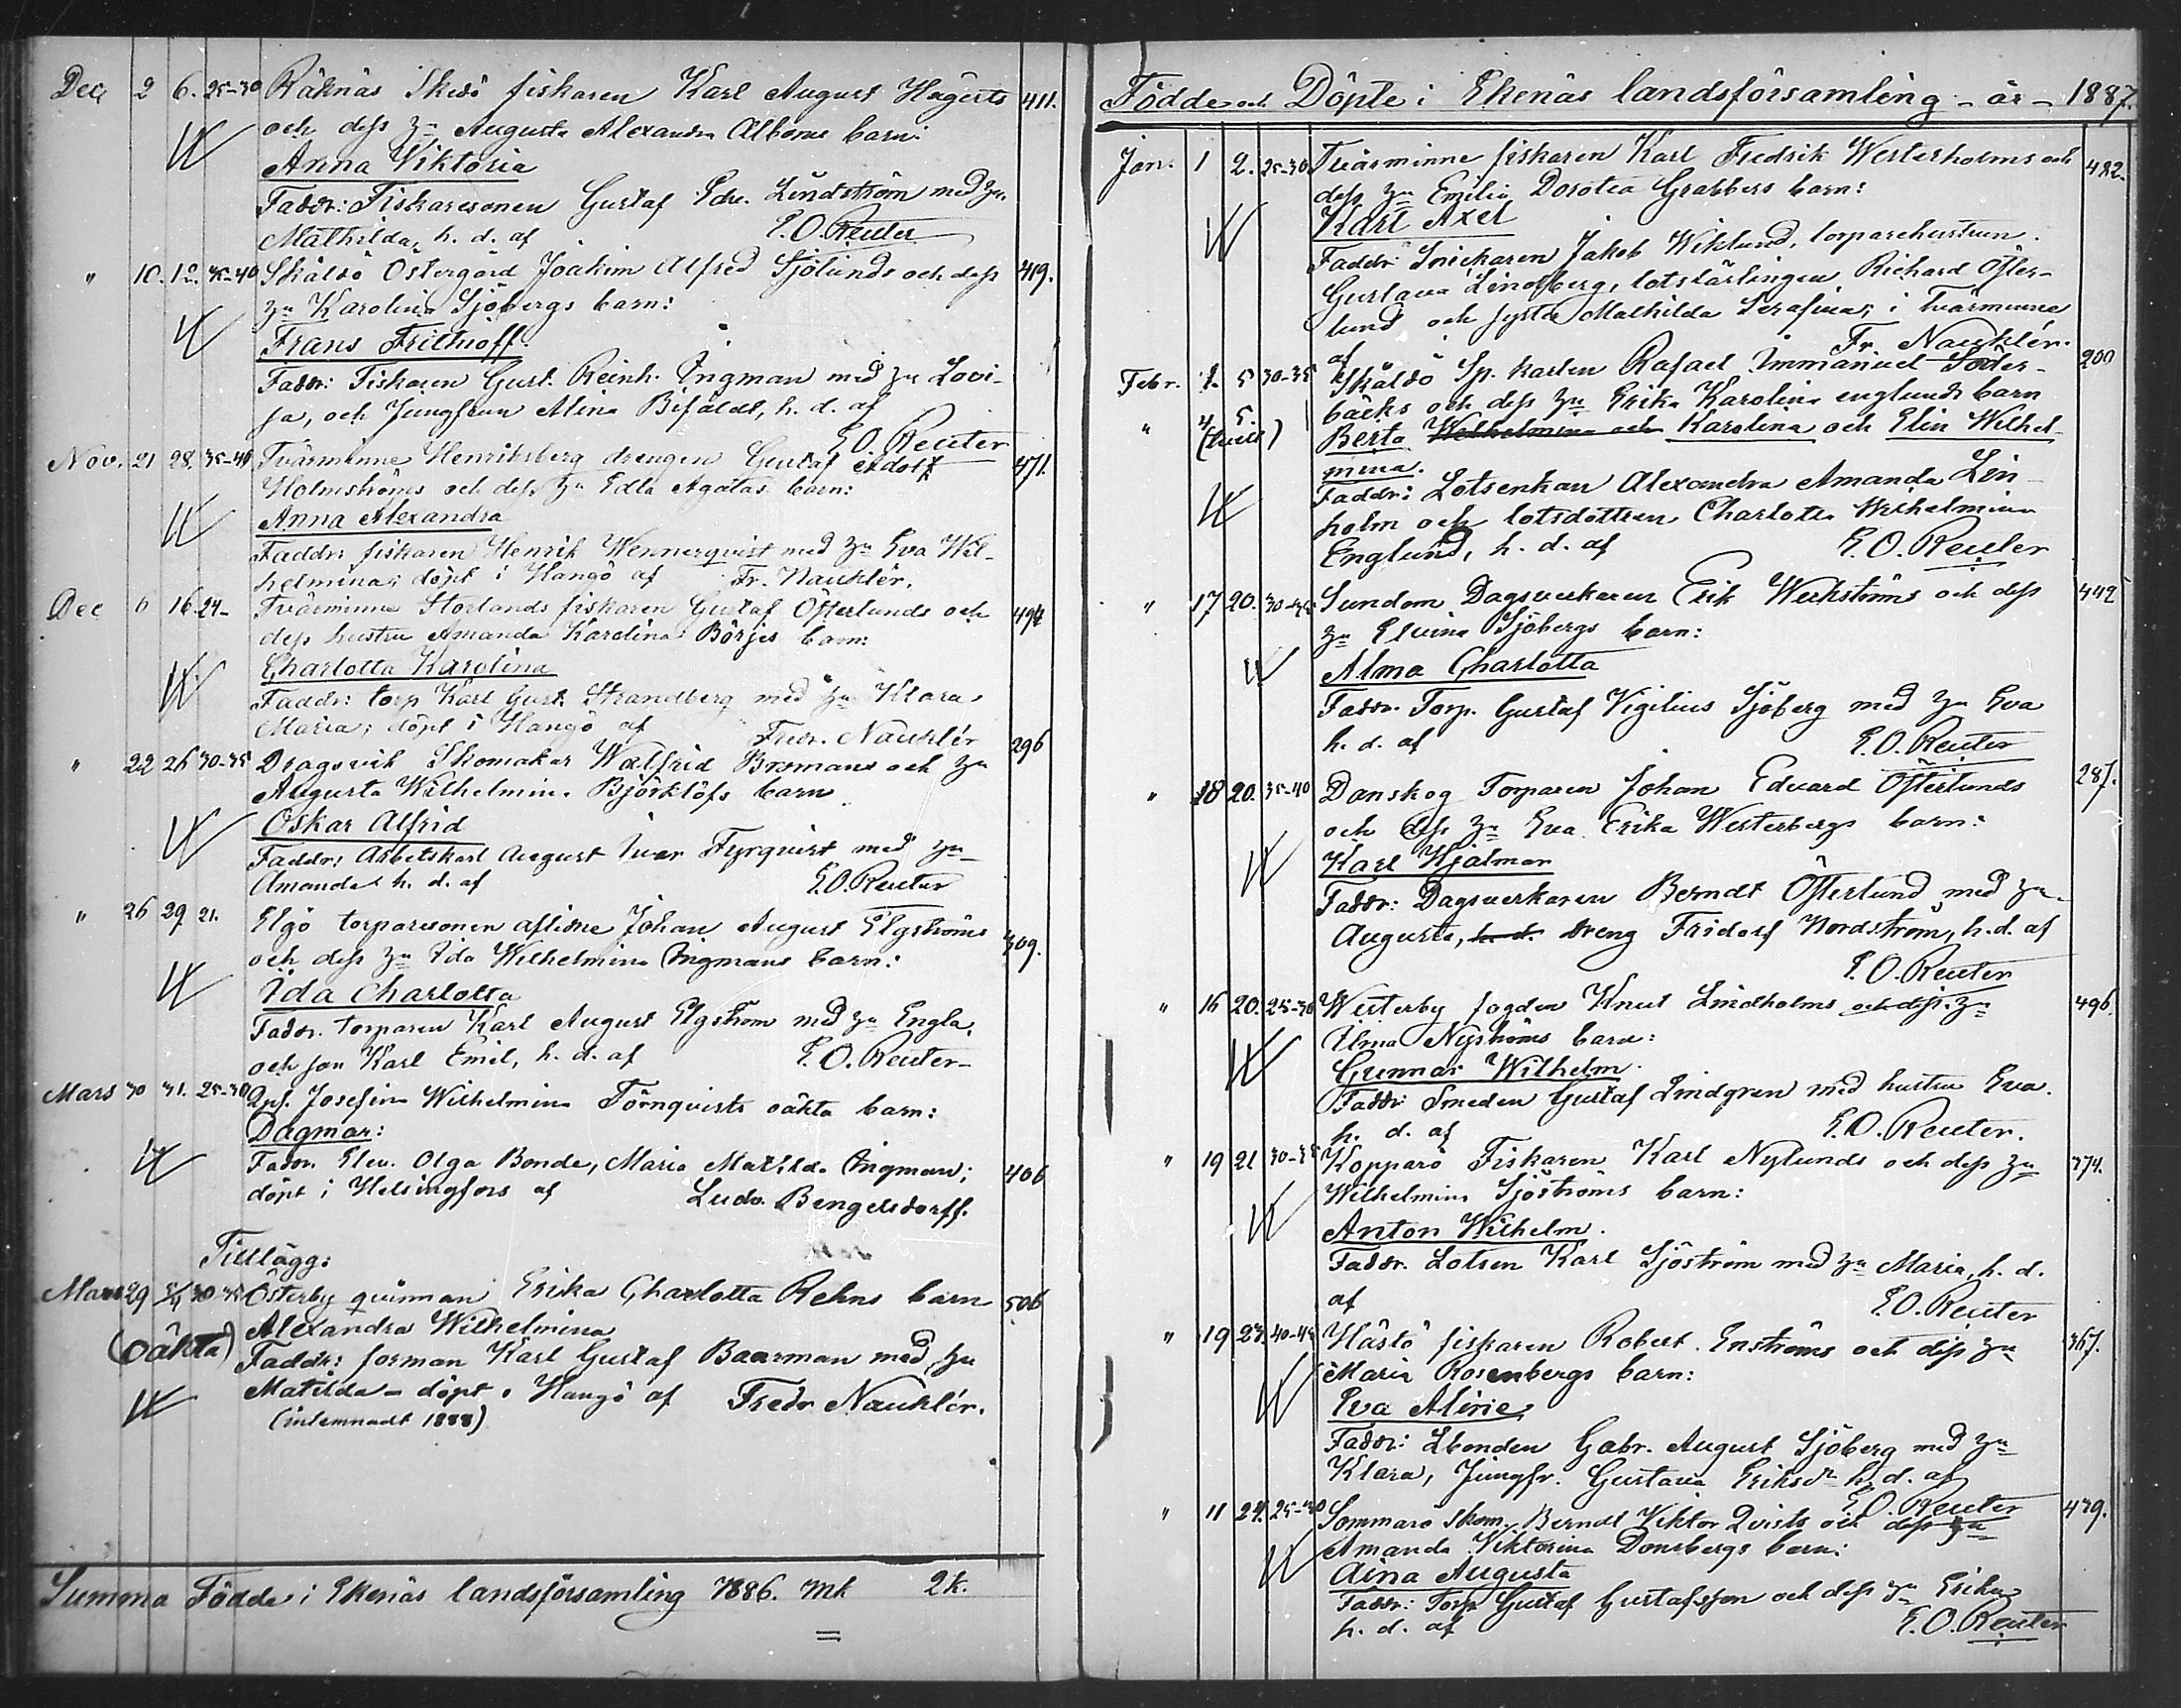 Dec 2 6. 25-30 Räknäs Skedö fiskaren Karl August Hägerts 411.
och dess h:u Augusta Alexandra Alboms barn:
Anna Viktoria
Faddr: Fiskaresonen Gustaf Edv. Lindström med h:u
Mathilda, h. d. af E. O. Reuter
" 10. 12. 35-40 Skåldö Östergård Joakim Alfred Sjölunds och dess 419.
h:u Karolina Sjöbergs barn:
Frans Frithioff.
Faddr: Fiskaren Gust. Reinh. Ingman med h:u Lovi-
sa, och Jungfrun Alina Bifäldt, h. d. af
E. O. Reuter
Nov. 21 28. 35-40 Tvärminne Henriksberg drengen Gustaf Adolf 471.
Holmströms och dess h:u Edla Agatas barn:
Anna Alexandra
Faddr: fiskaren Henrik Wennerqvist med h:u Eva Wil-
helmina; döpt i Hangö af Fr. Nauklér.
Dec 6 16. 24- Tvärminne Storlands fiskaren Gustaf Österlunds och 494
dess hustru Amanda Karolina Börjes barn:
Charlotta Karolina
Faddr: torp Karl Gust. Strandberg med h:u Klara
Maria; döpt i Hangö af Fredr. Nauklér
" 22 26 30-35 Dragsvik Skomakar Walfrid Bromans och h:u 296
Augusta Wilhelmin. Björklöfs barn
Oskar Alfrid
Faddr: Arbetskarl August Ivar Fyrqvist med h:u
Amanda h. d. af E. O. Reuter
" 26 29 21. Elgö torparesonen aflidne Johan August Elgströms 309.
och dess h:u Ida Wilhelmina Ingmans barn:
Ida Charlotta
Faddr. torparen Karl August Elgström med h:u Engla,
och son Karl Emil, h. d. af E. O. Reuter
Mars 30 31. 25-30 Josefina Wilhelmina Törnqvists oäkta barn:
Dagmar:
Faddr. Elev. Olga Bonde, Maria Matilda Ingman; 406
döpt i Helsingfors af Ludv. Bengelsdorff.
Tillägg:
Mars 29 5/4 30-35 Österby qvinnan Erika Charlotta Rehns barn 506
Alexandra Wilhelmina
(oäkta) Faddr: forman Karl Gustaf Baarman med h:u
Matilda - döpt i Hangö af Fredr Nauklér.
(inlemnadt 1888)
Summa Födde i Ekenäs landsförsamling 1886. mk 2k.
Födde och Döpte i Ekenäs landsförsamling - år - 1887.
Jan. 1 2. 25-30 Tvärminne fiskaren Karl Fredrik Westerholms och 482.
dess h:u Emilia Dorotea Grabbers barn:
Karl Axel
Faddr: Snickaren Jakob Wiklund, torparehustrun
Gustava Lindberg, lotslärlingen Richard Öster-
lund och syster Mathilda Serafina; i Tvärminne
af Fr. Nauklér.
Febr. 4 5 30-35 Skåldö Sp. karlen Rafael Immanuel Söder- 200
bäcks och dess h:u Erika Karolina Englunds barn
" 4 5. (tvill) Berta Wilhelmina och Karolina och Elin Wilhel-
mina.
Faddr: Lotsenkan Alexandra Amanda Lin-
holm och lotsdottren Charlotta Wilhelmina
Englund, h. d. af E. O. Reuter
" 17 20. 30-35 Sundom Dagsverkaren Erik Werkströms och dess 442
h:u Elvina Sjöbergs barn:
Alma Charlotta
Faddr. Torp. Gustaf Vigilius Sjöberg med h:u Eva
h. d. af E. O. Reuter
" 18 20. 35-40 Danskog Torparen Johan Edvard Österlunds 287.
och dess h:u Eva Erika Westerbergs barn:
Karl Hjalmar
Faddr: Dagsverkaren Berndt Österlund med h:u
Augusta, h. d. dreng Fridolf Nordström, h. d. af
E. O. Reuter
" 16 20. 25-30 Westerby fogden Knut Lindholms och dess h:u 496
Elma Nyströms barn:
Gunnar Wilhelm.
Faddr: Smeden Gustaf Lindgren med hustru Eva.
h. d. af E. O. Reuter.
" 19 21 30-35 Kopparö Fiskaren Karl Nylunds och dess h:u 374.
Wilhelmina Sjöströms barn:
Anton Wilhelm.
Faddr. Lotsen Karl Sjöström med h:u Maria, h. d.
af E. O. Reuter
" 19 23. 40-45 Hästö fiskaren Robert Enströms och dess h:u 367.
Maria Rosenbergs barn:
Eva Aline
Faddr: Lbonden Gabr. August Sjöberg med h:u
Klara, Jungfr. Gustava Eriksdr h. d. af
E. O. Reuter
" 11 24. 25-30 Sommarö Skom. Berndt Viktor Qvists och dess h:u 439.
Amanda Viktorina Donsbergs barn:
Aina Augusta
Faddr: Torp. Gustaf Gustafsson och dess h:u Erika
h. d. af E. O. Reuter